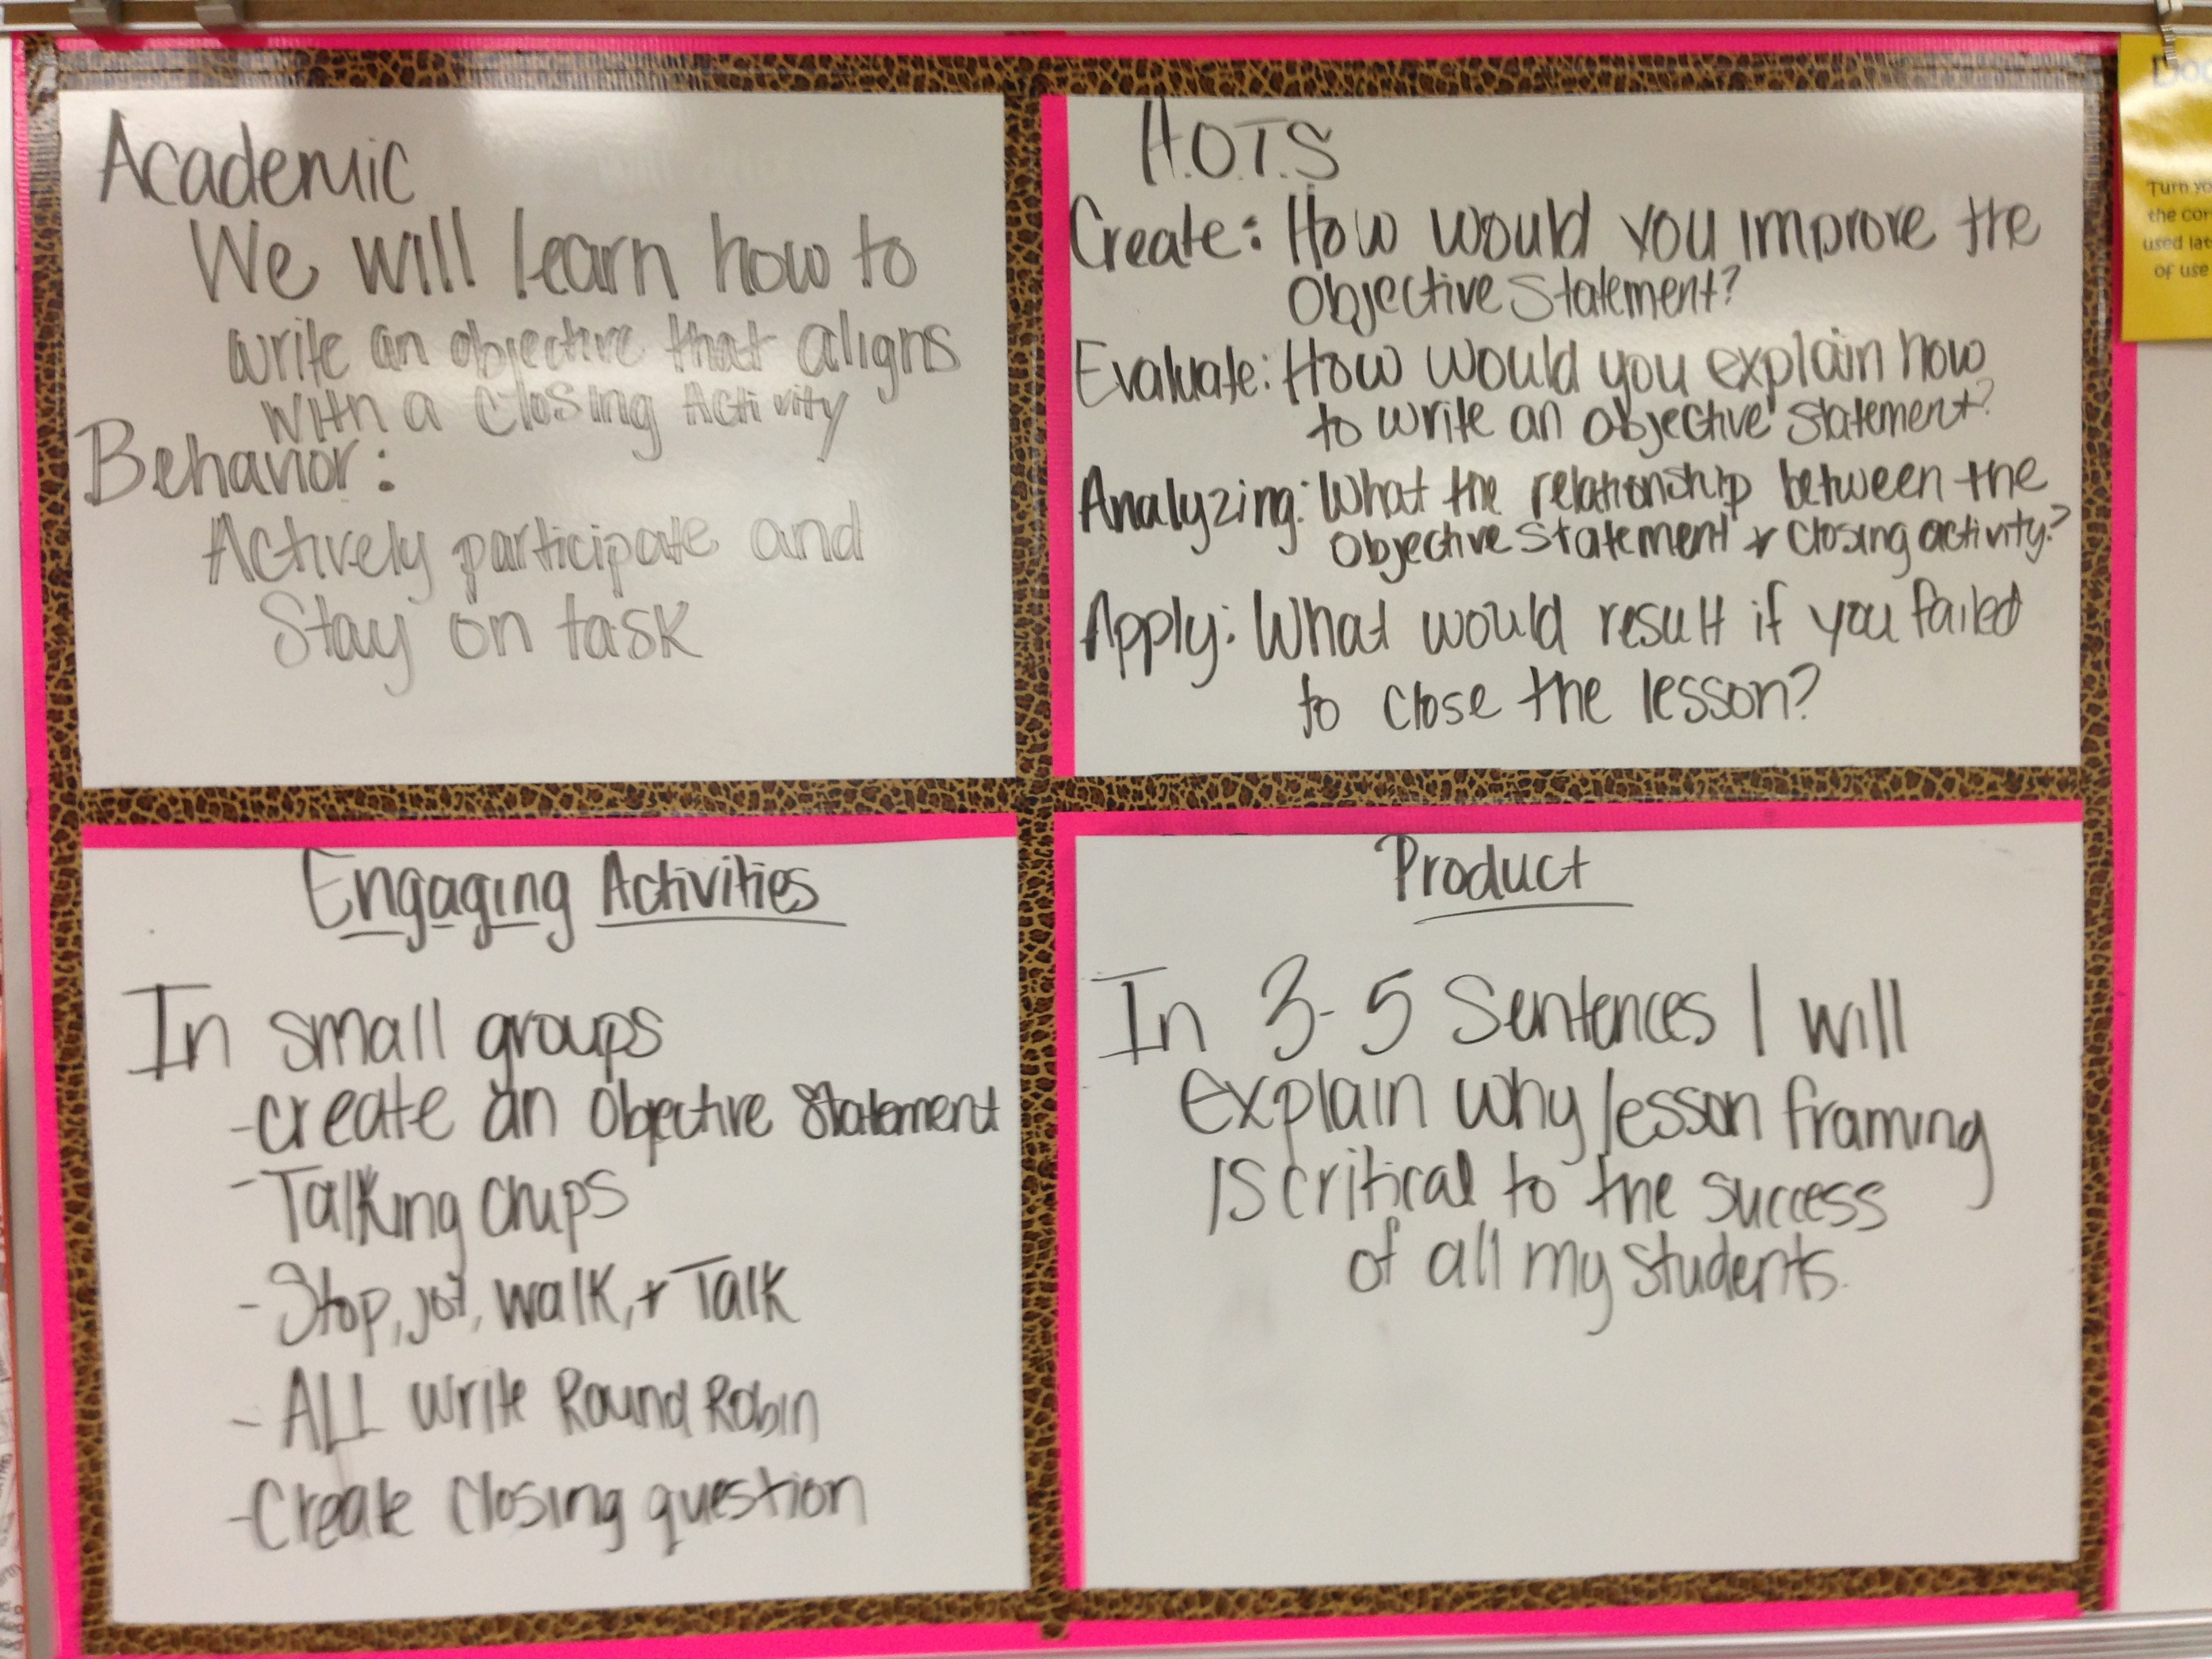 Academic
We will learn how to
write an objective that aligns
with a closing Activity
Behavior:
Actively participate and
Stay on task
H.O.T.S
Create: How would you improve the
Objective Statement?
Evaluate: How would you explain how
to write an objective statement?
Analyzing: What the relationship between the
Objective Statement + Closing activity?
Apply: What would result if you failed
to close the lesson?
Engaging Activities
In small groups
- create an Objective Statement
- Talking Chips
- Stop, jot, walk, + Talk
- ALL Write Round Robin
- Create Closing question
Product
In 3-5 Sentences I will
explain why lesson framing
is critical to the success
of all my students.
Turn
the
used
of use